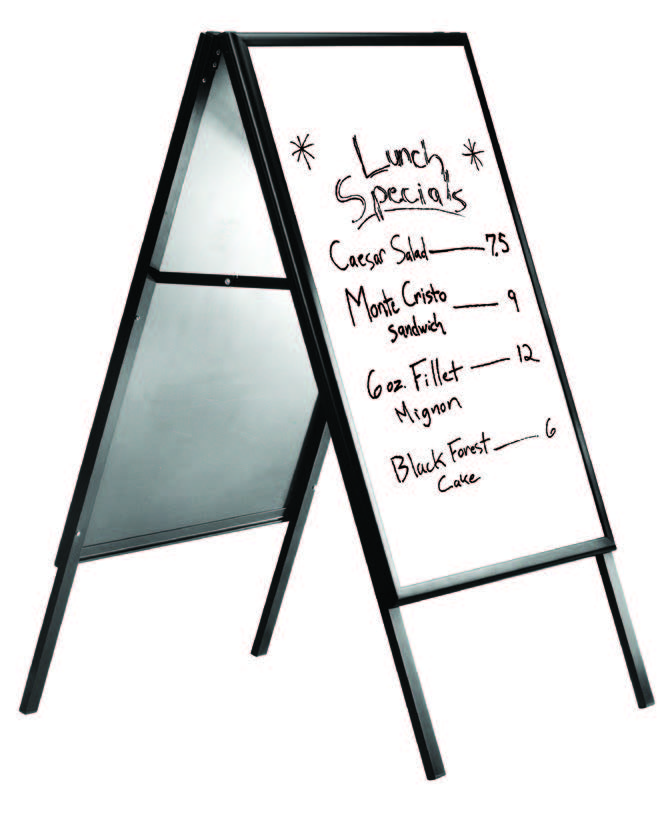 Lunch
Specials
Caesar Salad — 7.5
Monte Cristo — 9
Sandwich
6 oz. Fillet — 12
Mignon
Black Forest — 6
Cake